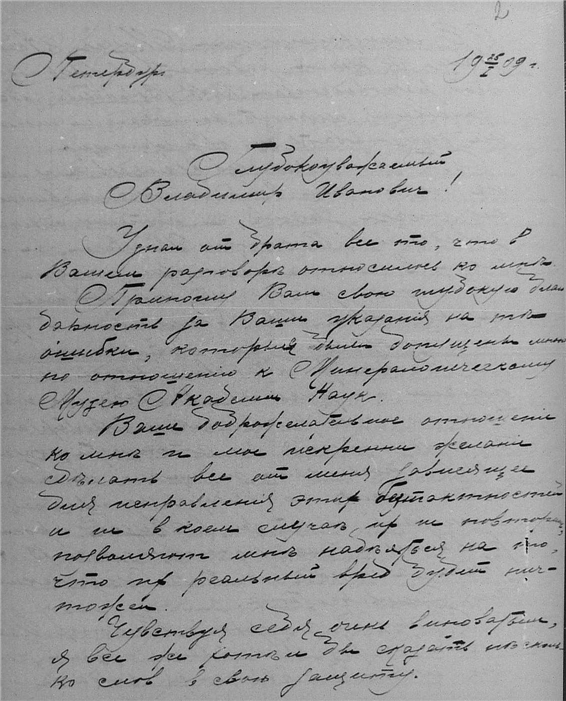 2
Петербург 19 25/I 09 г.
Глубокоуважаемый
Владимир Иванович!
Узнал от брата все то, что в
Вашем разговоре относилось ко мнѣ.
Приношу Вам свою глубокую благо
дарность за Ваши указания на те
ошибки, которыя были допущены мною
по отношению к Минералогическому
Музею Академии Наук.
Ваше доброжелательное отношение
ко мнѣ и мое искреннее желание
сдѣлать все от меня зависящее
для исправления этих безтактностей
и ни в коем случаѣ их не повторять,
позволяют мнѣ надѣяться на то,
что их реальный вред будет нич
тожен.
Чувствуя себя очень виноватым,
я все же хотѣл бы сказать несколь
ко слов в свою защиту.